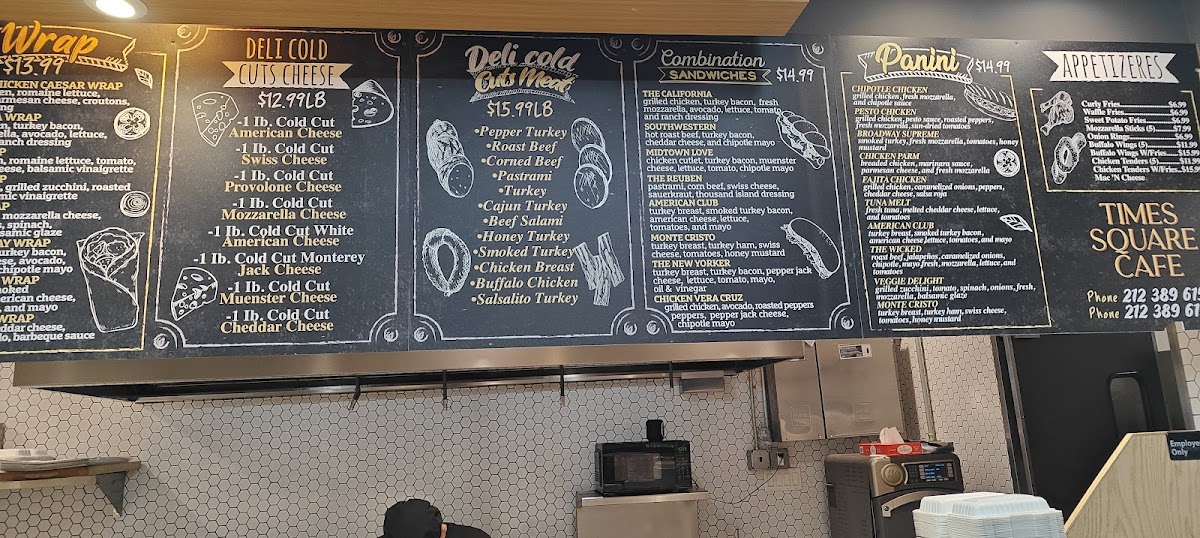 Wrap
$13.99
HICKEN CAESAR WRAP
en, romaine lettuce,
armesan cheese, croutons,
ing
A WRAP
n, turkey bacon,
ella, avocado, lettuce,
ranch dressing
AP
n, romaine lettuce, tomato,
eese, balsamic vinaigrette
AP
, grilled zucchini, roasted
mic vinaigrette
AP
mozzarella cheese,
s, spinach,
samic glaze
AY WRAP
urkey bacon,
se, avocado,
chipotle mayo
P
moked
erican cheese,
, and mayo
WRAP
ddar cheese,
o, barbeque sauce
DELI COLD
CUTS CHEESE
$12.99LB
-1 Ib. Cold Cut
American Cheese
-1 Ib. Cold Cut
Swiss Cheese
-1 Ib. Cold Cut
Provolone Cheese
-1 Ib. Cold Cut
Mozzarella Cheese
-1 Ib. Cold Cut White
American Cheese
-1 Ib. Cold Cut Monterey
Jack Cheese
-1 Ib. Cold Cut
Muenster Cheese
-1 Ib. Cold Cut
Cheddar Cheese
Deli cold
Cuts Meat
$15.99LB
•Pepper Turkey
•Roast Beef
•Corned Beef
•Pastrami
•Turkey
•Cajun Turkey
•Beef Salami
•Honey Turkey
•Smoked Turkey
•Chicken Breast
•Buffalo Chicken
•Salsalito Turkey
Combination
SANDWICHES $14.99
THE CALIFORNIA
grilled chicken, turkey bacon, fresh
mozzarella, avocado, lettuce, tomato,
and ranch dressing
SOUTHWESTERN
hot roast beef, turkey bacon,
cheddar cheese, and chipotle mayo
MIDTOWN LOVE
chicken cutlet, turkey bacon, muenster
cheese, lettuce, tomato, chipotle mayo
THE REUBEN
pastrami, corn beef, swiss cheese,
sauerkraut, thousand island dressing
AMERICAN CLUB
turkey breast, smoked turkey bacon,
american cheese, lettuce,
tomatoes, and mayo
MONTE CRISTO
turkey breast, turkey ham, swiss
cheese, tomatoes, honey mustard
THE NEW YORKER
turkey breast, turkey bacon, pepper jack
cheese, lettuce, tomato, mayo,
oil & vinegar
CHICKEN VERA CRUZ
grilled chicken, avocado, roasted peppers
peppers, pepper jack cheese,
chipotle mayo
Panini $14.99
CHIPOTLE CHICKEN
grilled chicken, fresh mozzarella,
and chipotle sauce
PESTO CHICKEN
grilled chicken, pesto sauce, roasted peppers,
fresh mozzarella, sun-dried tomatoes
BROADWAY SUPREME
smoked turkey, fresh mozzarella, tomatoes, honey
mustard
CHICKEN PARM
breaded chicken, marinara sauce,
parmesan cheese, and fresh mozzarella
FAJITA CHICKEN
grilled chicken, caramelized onions, peppers,
cheddar cheese, salsa roja
TUNA MELT
fresh tuna, melted cheddar cheese, lettuce,
and tomatoes
AMERICAN CLUB
turkey breast, smoked turkey bacon,
american cheese lettuce, tomatoes, and mayo
THE WICKED
roast beef, jalapeños, caramelized onions,
chipotle, mayo fresh, mozzarella, lettuce, and
tomatoes
VEGGIE DELIGHT
grilled zucchini, tomato, spinach, onions, fresh,
mozzarella, balsamic glaze
MONTE CRISTO
turkey breast, turkey ham, swiss cheese,
tomatoes, honey mustard
APPETIZERES
Curly Fries $6.99
Waffle Fries $6.99
Sweet Potato Fries $6.99
Mozzarella Sticks (5) $7.99
Onion Rings $6.99
Buffalo Wings (5) $11.99
Buffalo Wings W/Fries $15.99
Chicken Tenders (5) $11.99
Chicken Tenders W/Fries $15.99
Mac 'N Cheese
TIMES
SQUARE
CAFE
Phone 212 389 615
Phone 212 389 61
Employe
Only